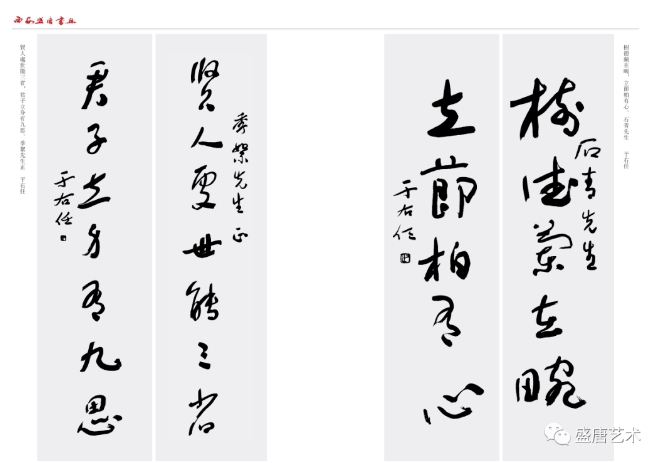 樹德蘭在畹，立節柏有心 石青先生 于右任
樹德蘭在畹
石青先生
立節柏有心
于右任
賢人處世能三省
季鸞先生正
君子立身有九思
于右任
賢人處世能三省，君子立身有九思。 先生正 于右任
盛唐艺术